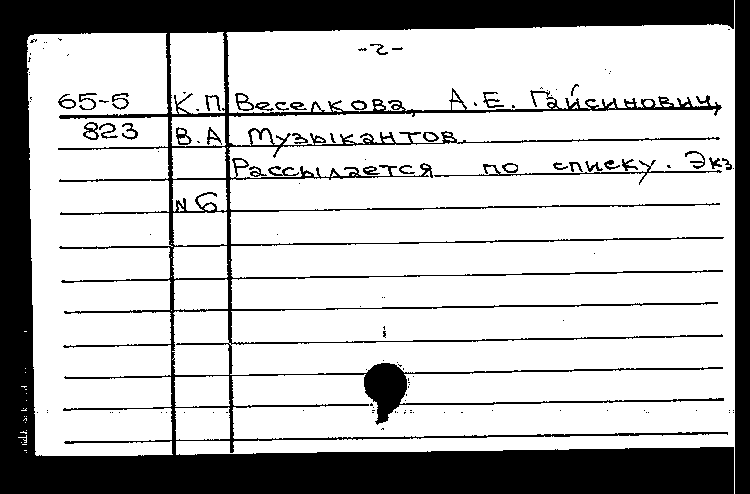 -2-
65-5 К.П. Веселкова, А.Е. Гайсинович,
823 В.А. Музыкантов.
Рассылается по списку. Экз.
№6.